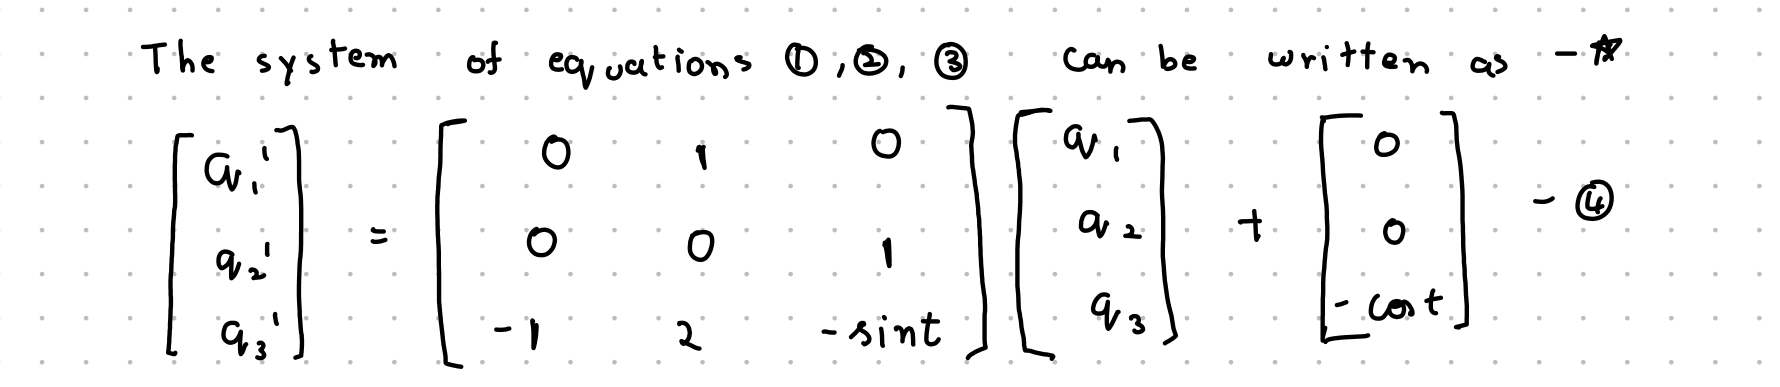 The system of equations ①, ②, ③ can be written as - ☆
[q₁' q₂' q₃'] = [0 1 0; 0 0 1; -1 2 -sint] [q₁ q₂ q₃] + [0 0 -cost] - ④